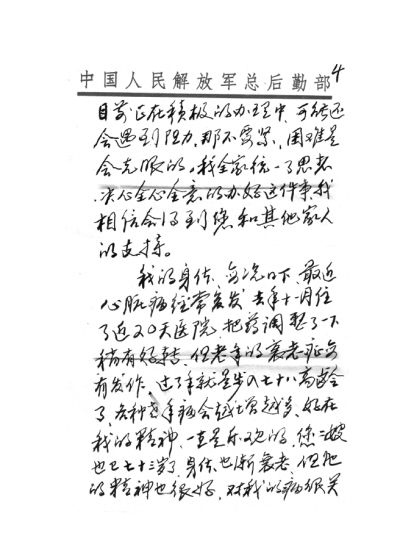 中国人民解放军总后勤部 4
目前正在积极的办理中,可能还
会遇到阻力,那不要紧,困难是
会克服的。我全家统一了思想
决心全心全意的办好这件事,我
相信会得到您和其他家人
的支持。
我的身体,每况日下,最近
心脏病经常复发,去年十一月住
了近20天医院,把药调整了一下
稍有好转,但老年的衰老症每
有发作、过了年就是步入七十八高龄
了,各种老年病会越增越多,好在
我的精神,一直是乐观的,您二嫂
也已七十三岁了,身体也渐衰老,但她
的精神也很好,对我的病很关